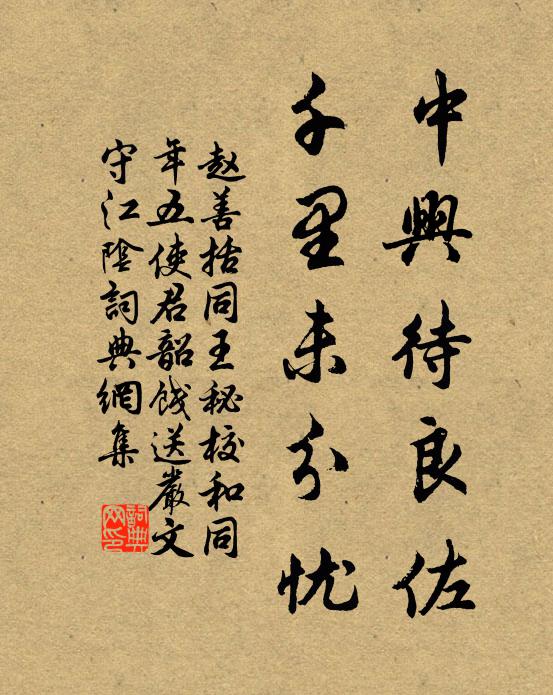 中興待良佐
千里未分忧
赵善括同王秘校和同
年五使君韶餞送嚴文
守江陰詞典網集
詞典网印